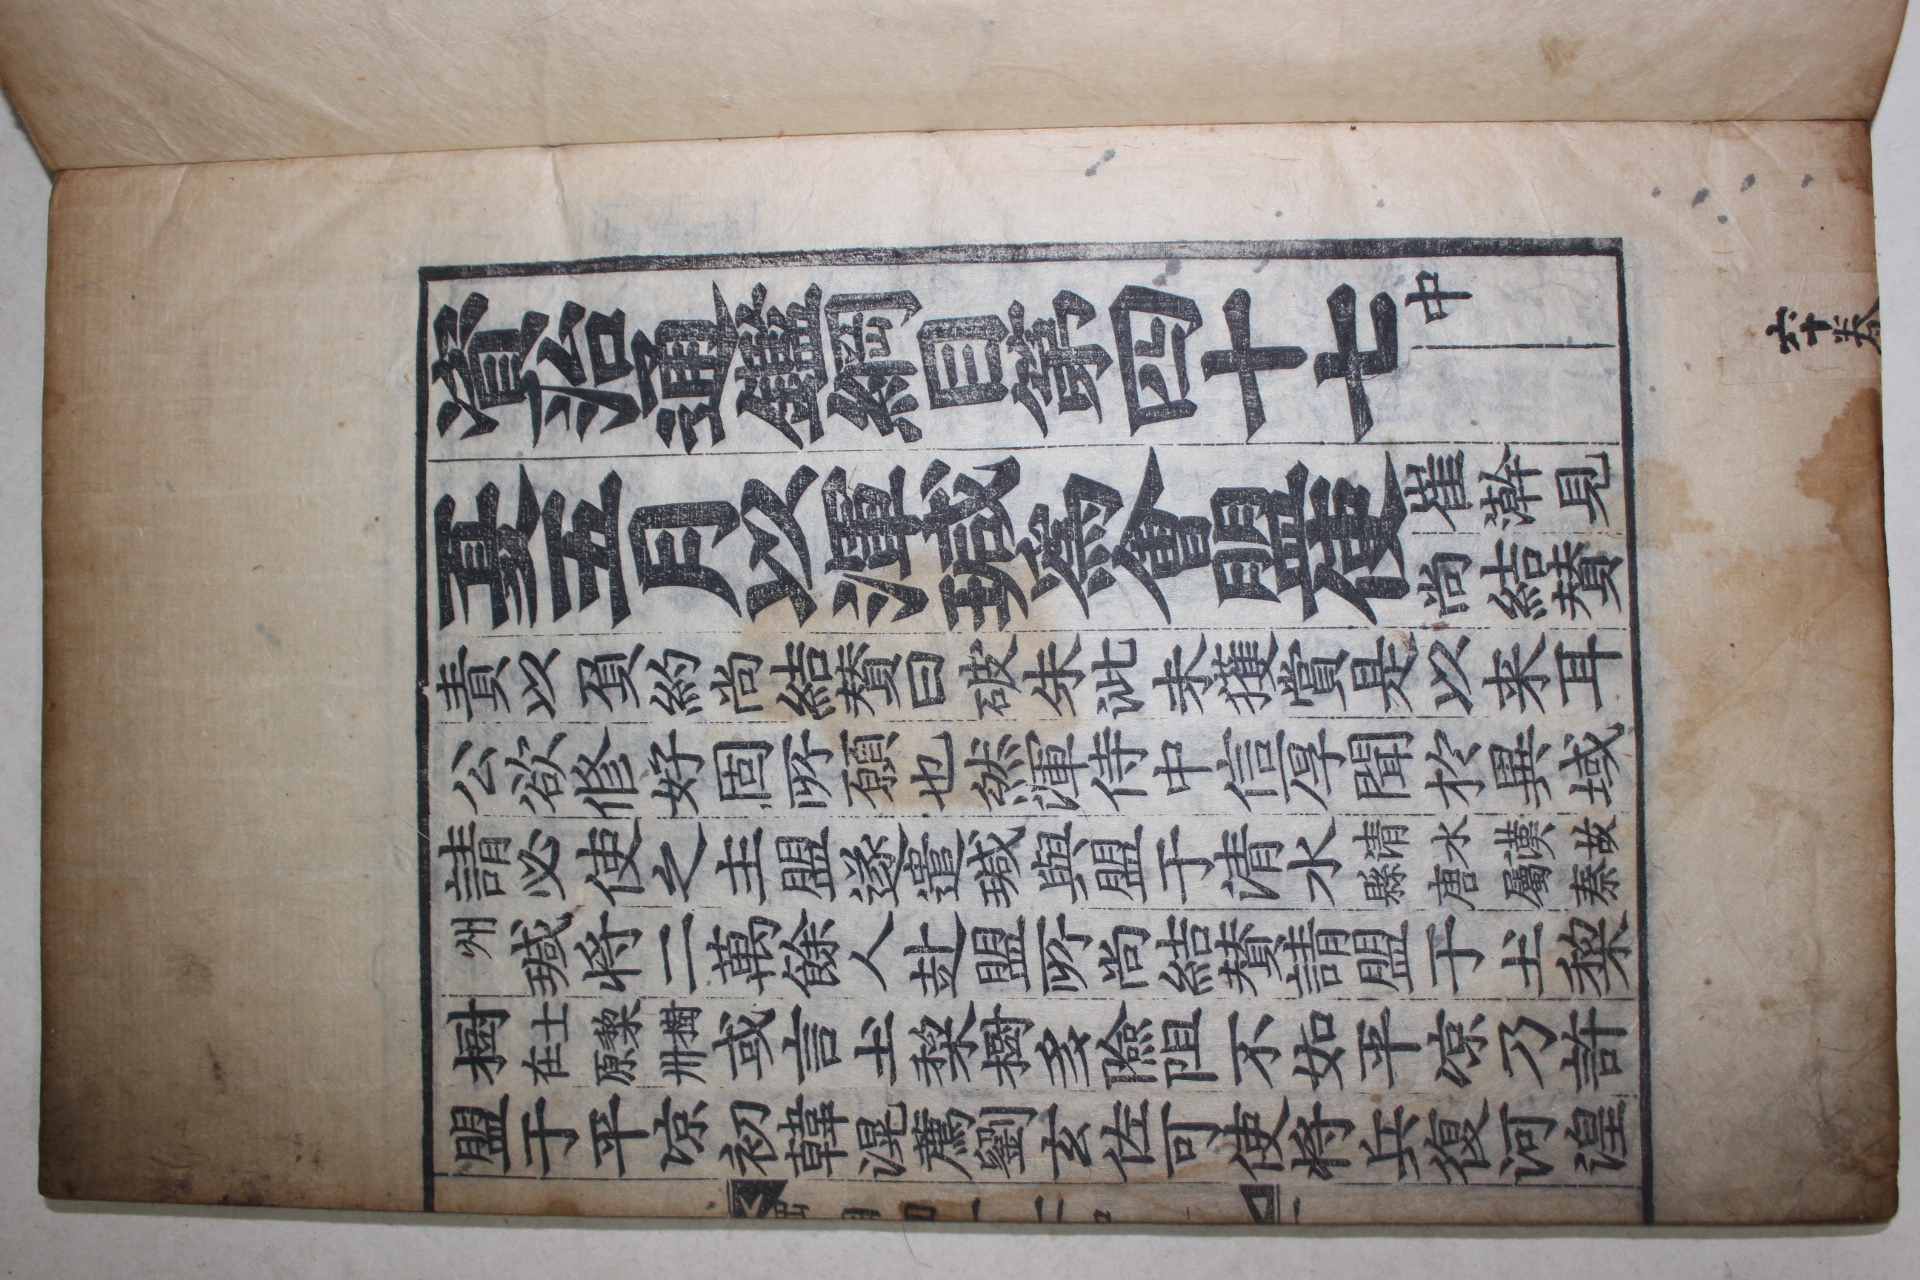 資治通鑑綱目第四十七 中
夏五月以渾瑊爲會盟使 崔澣見尚結贊
責以負約尚結贊曰破朱泚未獲賞是以来耳
公欲修好固所願也然渾侍中信厚聞於異域
請必使之主盟遂遣瑊與盟于清水 清水漢故縣唐屬秦
州 瑊将二萬餘人赴盟所尚結贊請盟于土棃
樹 土棃樹在原州 或言土棃樹多險阻不如平凉乃許
盟于平凉初韓滉薦劉玄佐可使将兵復河湟
六十卷